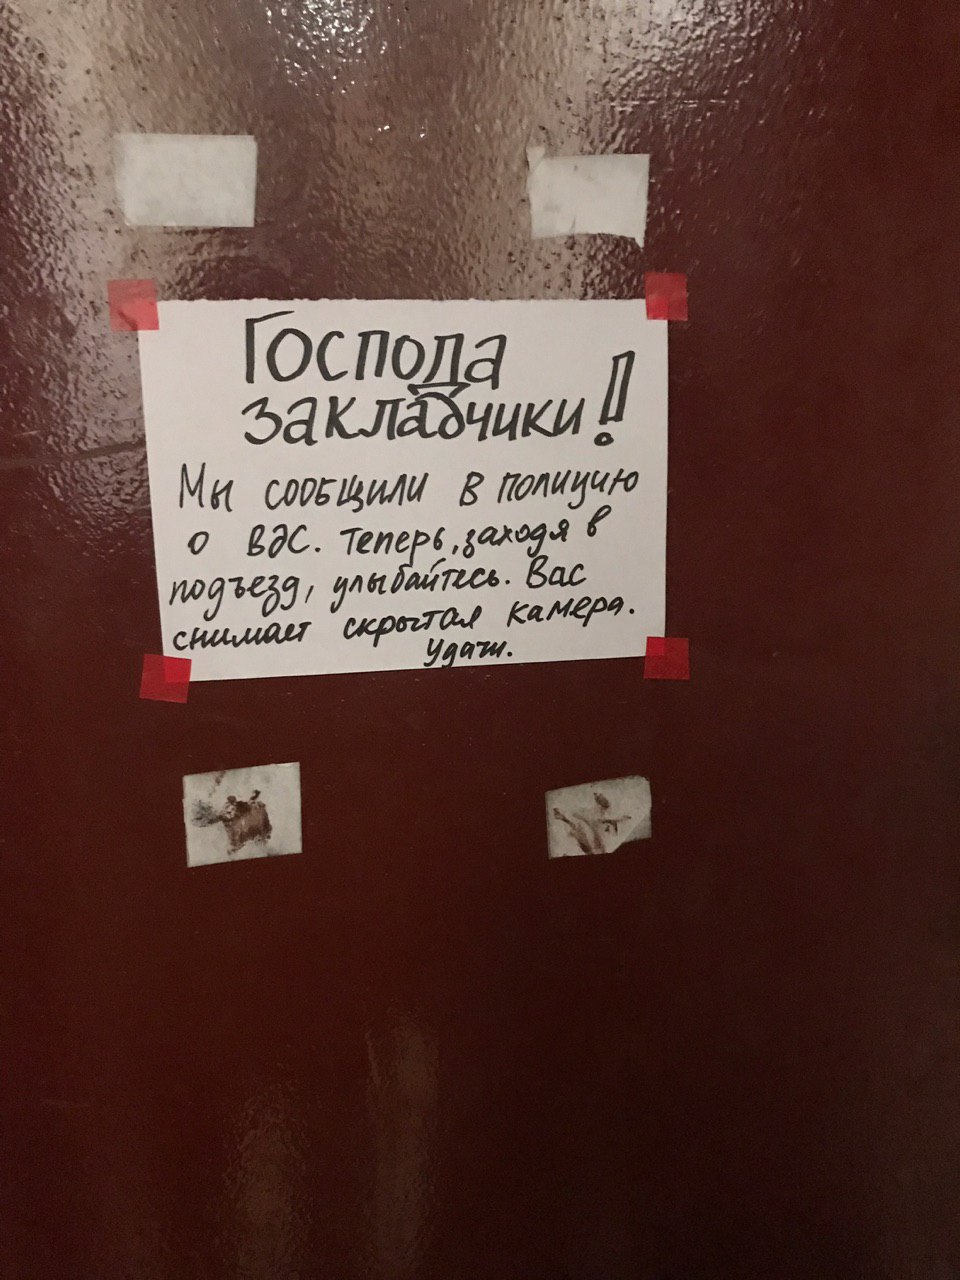 Господа
закладчики!
Мы сообщили в полицию
о вас. Теперь, заходя в
подъезд, улыбайтесь. Вас
снимает скрытая камера.
Удачи.